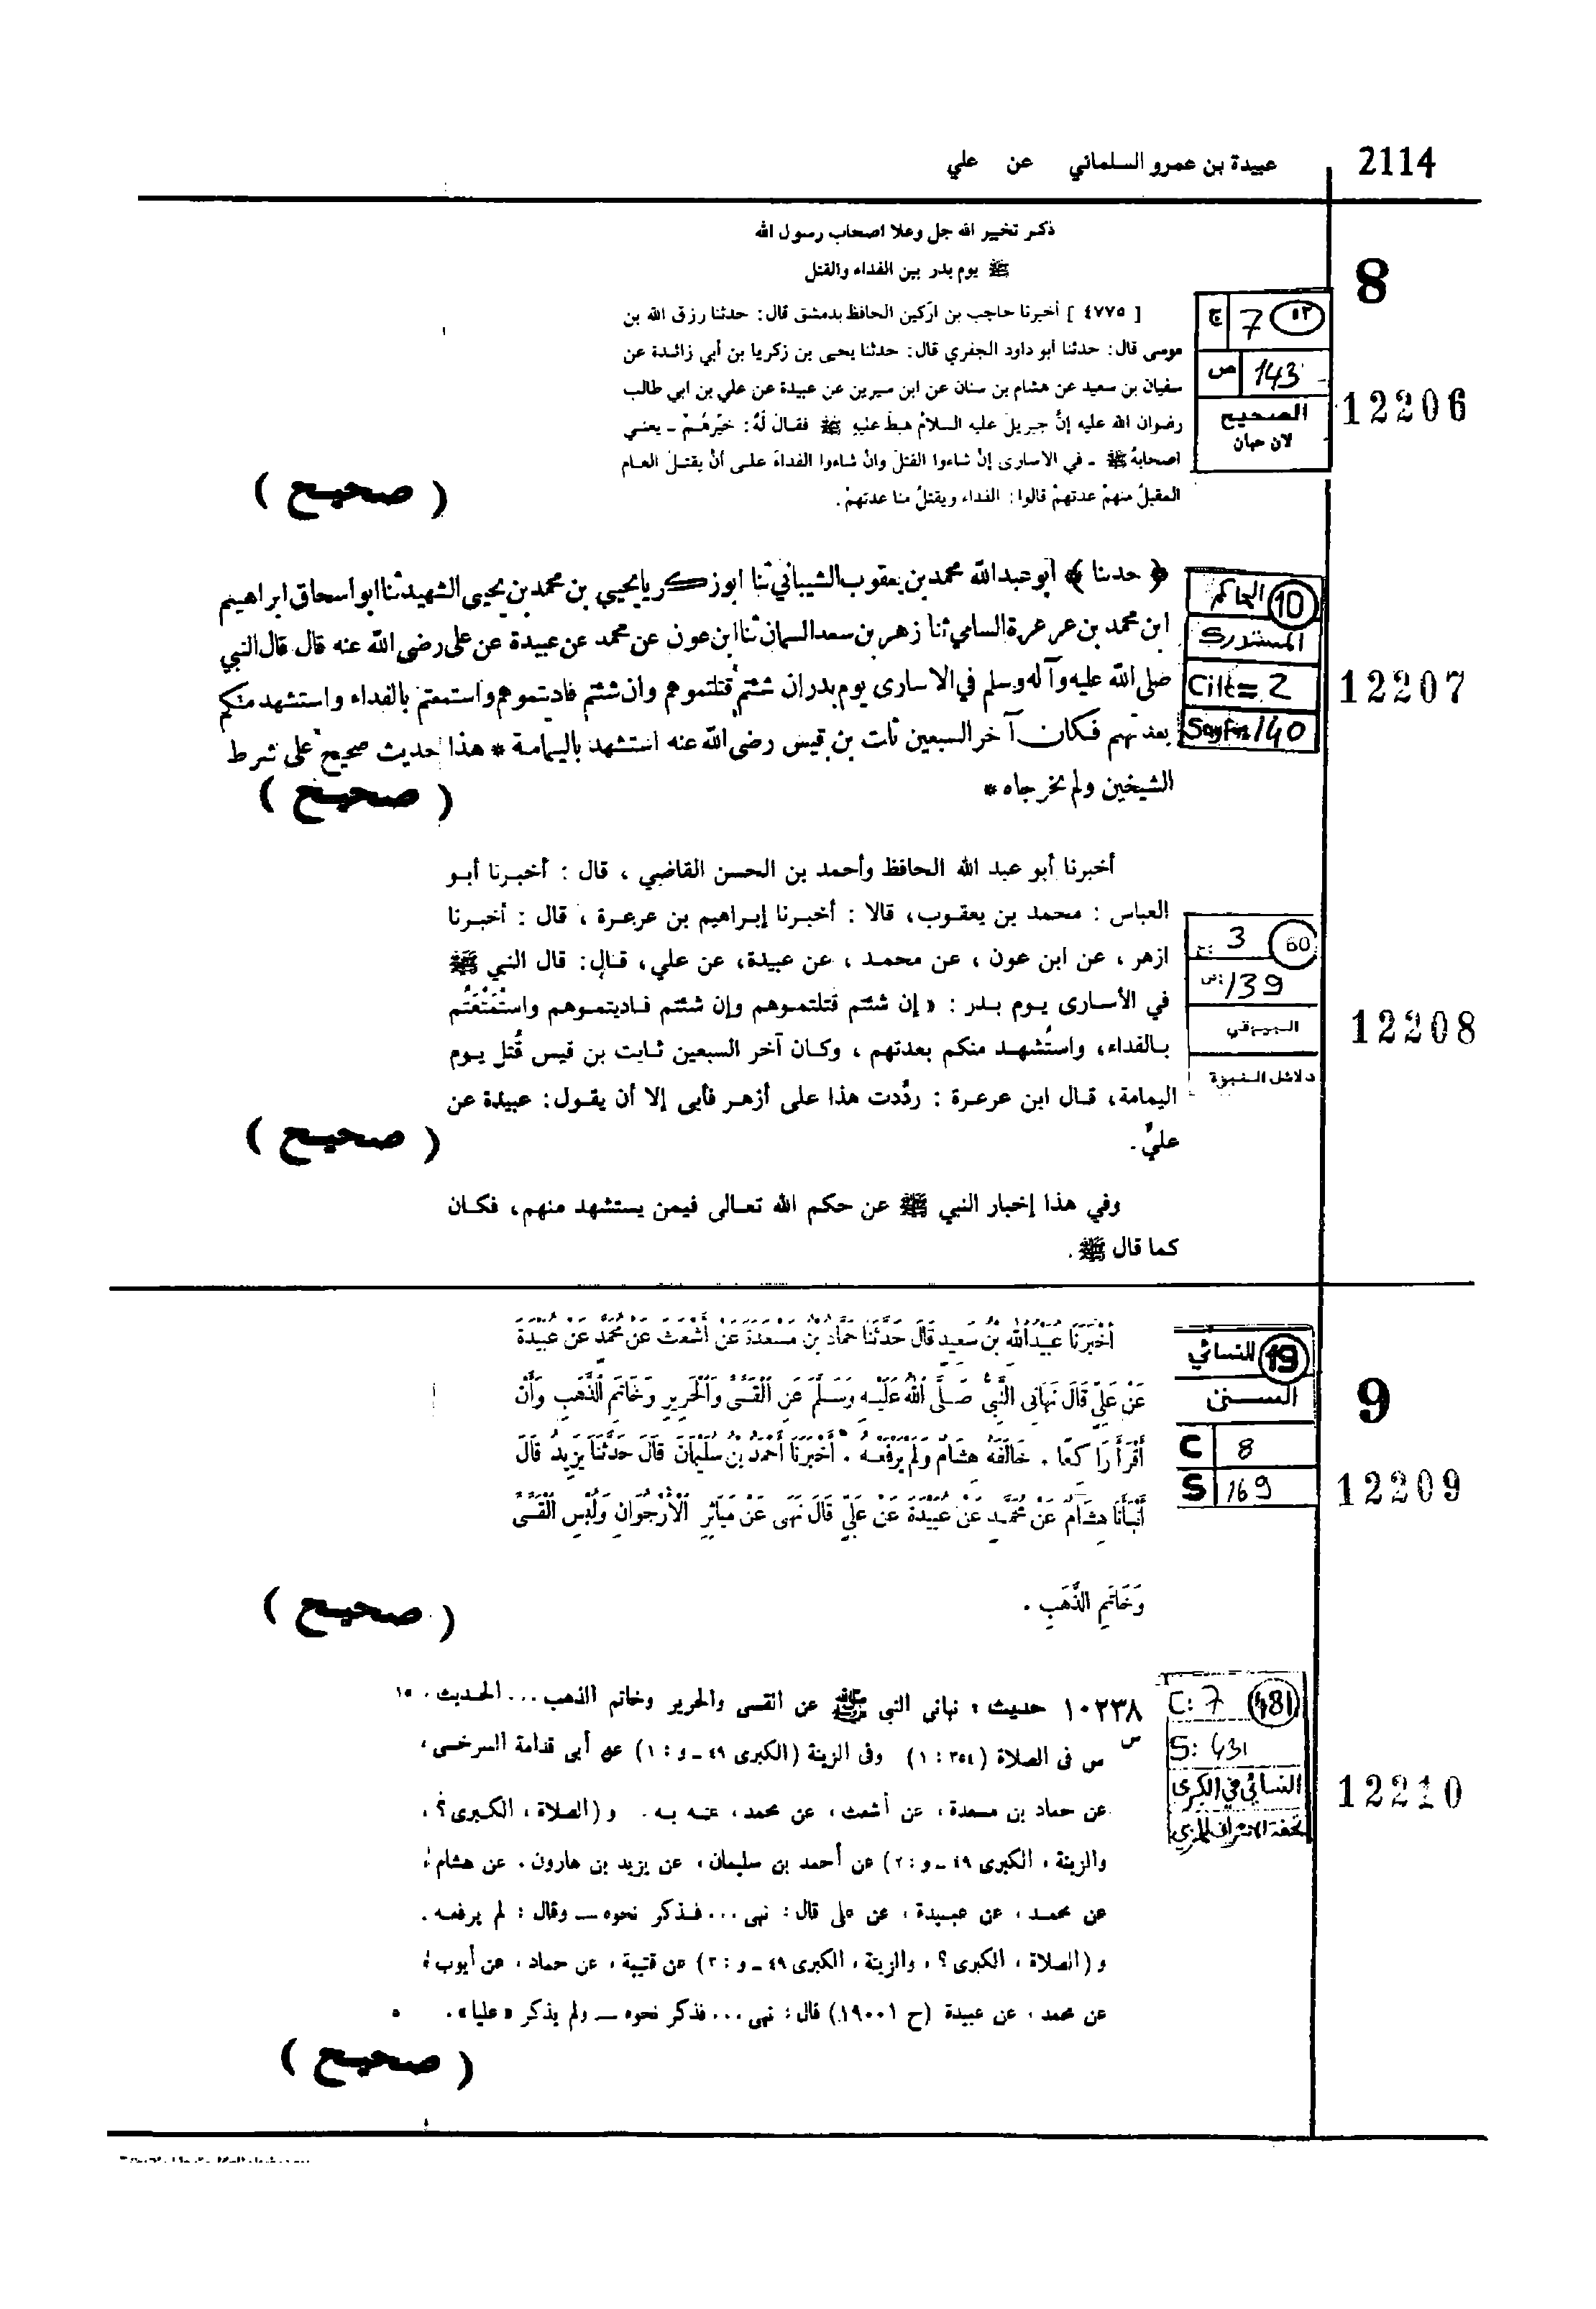 2114
عبيدة بن عمرو السلماني عن علي
ذكر تخيير الله جل وعلا اصحاب رسول الله
ﷺ يوم بدر بين الفداء والقتل
8
[ ٤٧٧٥ ] أخبرنا حاجب بن أركين الحافظ بدمشق قال: حدثنا رزق الله بن
موسى قال: حدثنا أبو داود الجفري قال: حدثنا يحيى بن زكريا بن أبي زائدة عن
سفيان بن سعيد عن هشام بن سنان عن ابن سيرين عن عبيدة عن علي بن ابي طالب
رضوان الله عليه إنَّ جبريل عليه السلام هبط عليه ﷺ فقال لَهُ: خيِّرهُمْ - يعني
اصحابهُ ﷺ - في الاسارى إنْ شاءوا القتلَ وانْ شاءوا الفداءَ على أنْ يقتلَ العام
المقبلُ منهمْ عدتهمْ قالوا: الفداء ويقتلُ منا عدتهمْ.
ج 7 ١٣
ص 143
الصحيح
لابن حبان
12206
( صحيح )
﴿ حدثنا ﴾ أبو عبد الله محمد بن يعقوب الشيباني ثنا ابو زكريا يحيى بن محمد بن يحيى الشهيد ثنا ابو اسحاق ابراهيم
ابن محمد بن عرعرة السامي ثنا زهر بن سعد السمان ثنا ابن عون عن محمد عن عبيدة عن على رضى الله عنه قال قال النبي
صلى الله عليه وآله وسلم في الاسارى يوم بدر ان شئتم قتلتموهم وان شئتم فاديتموهم واستمعتم بالفداء واستشهد منكم
بعدتهم فكان آخر السبعين ثابت بن قيس رضى الله عنه استشهد باليمامة * هذا حديث صحيح على شرط
الشيخين ولم يخرجاه *
الحاكم 10
المستدرك
Cilt= 2
Sayfa 140
12207
( صحيح )
أخبرنا أبو عبد الله الحافظ وأحمد بن الحسن القاضي ، قال : أخبرنا أبو
العباس : محمد بن يعقوب، قالا : أخبرنا إبراهيم بن عرعرة ، قال : أخبرنا
ازهر ، عن ابن عون ، عن محمد ، عن عبيدة، عن علي، قال: قال النبي ﷺ
في الأسارى يوم بدر : « إن شئتم قتلتموهم وإن شئتم فاديتموهم واستَمْتَعْتُم
بالفداء، واستُشهد منكم بعدتهم ، وكان آخر السبعين ثابت بن قيس قُتل يوم
اليمامة، قال ابن عرعرة : ردَّدت هذا على أزهر فأبى إلا أن يقول: عبيدة عن
عليّ.
ج: 3 60
ص: 139
البيهقي
دلائل النبوة
12208
( صحيح )
وفي هذا إخبار النبي ﷺ عن حكم الله تعالى فيمن يستشهد منهم، فكان
كما قال ﷺ.
9
أَخْبَرَنَا عُبَيْدُ اللهِ بْنُ سَعِيدٍ قَالَ حَدَّثَنَا حَمَّادُ بْنُ مَسْعَدَةَ عَنْ أَشْعَثَ عَنْ مُحَمَّدٍ عَنْ عُبَيْدَةَ
عَنْ عَلِيٍّ قَالَ نَهَانِي النَّبِيُّ صَلَّى اللهُ عَلَيْهِ وَسَلَّمَ عَنِ الْقَسِّيِّ وَالْحَرِيرِ وَخَاتَمِ الذَّهَبِ وَأَنْ
أَقْرَأَ رَاكِعًا . خَالَفَهُ هِشَامٌ وَلَمْ يَرْفَعْهُ . أَخْبَرَنَا أَحْمَدُ بْنُ سُلَيْمَانَ قَالَ حَدَّثَنَا يَزِيدُ قَالَ
أَنْبَأَنَا هِشَامٌ عَنْ مُحَمَّدٍ عَنْ عُبَيْدَةَ عَنْ عَلِيٍّ قَالَ نَهَى عَنْ مَيَاثِرِ الْأُرْجُوَانِ وَلُبْسِ الْقَسِّيِّ
وَخَاتَمِ الذَّهَبِ .
النسائي 19
السنن
C 8
S 169
12209
( صحيح )
١٠٢٣٨ حديث : نهانى النبى ﷺ عن القسى والحرير وخاتم الذهب ... الحديث . ١٥
س
س فى الصلاة (٣٥٤ : ١) وفى الزينة (الكبرى ٤٩ - و : ١) عن أبى قدامة السرخسى ،
عن حماد بن مسعدة ، عن أشعث ، عن محمد ، عنه به . و (الصلاة ، الكبرى ؟ ،
والزينة ، الكبرى ٤٩ - و : ٢) عن أحمد بن سليمان ، عن يزيد بن هارون ، عن هشام ،
عن محمد ، عن عبيدة ، عن على قال : نهى ... فذكر نحوه — وقال : لم يرفعه .
و (الصلاة ، الكبرى ؟ ، والزينة ، الكبرى ٤٩ - و : ٣) عن قتيبة ، عن حماد ، عن أيوب ،
عن محمد ، عن عبيدة (ح ١٩٠٠١) قال : نهى ... فذكر نحوه — ولم يذكر «عليا» . ٥
C: 7 481
S: 431
النسائي في الكبرى
تحفة الاشراف للمزي
12210
( صحيح )